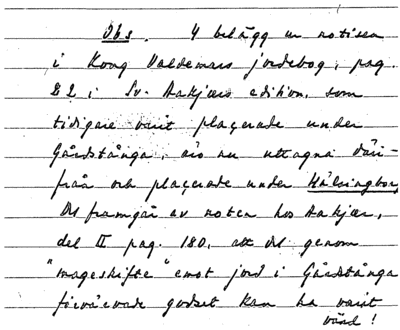 Obs. 4 belägg ur notisen
i Kong Valdemars jordebog, pag.
82 i Sv. Aakjærs edition, som
tidigare varit placerade under
Gårdstånga, äro nu uttagna där-
från och placerade under Hälsingborg
Det framgår av noten hos Aakjær,
del II pag. 180, att det genom
"mageskifte" emot jord i Gårdstånga
förvärvade godset kan ha varit
värd!